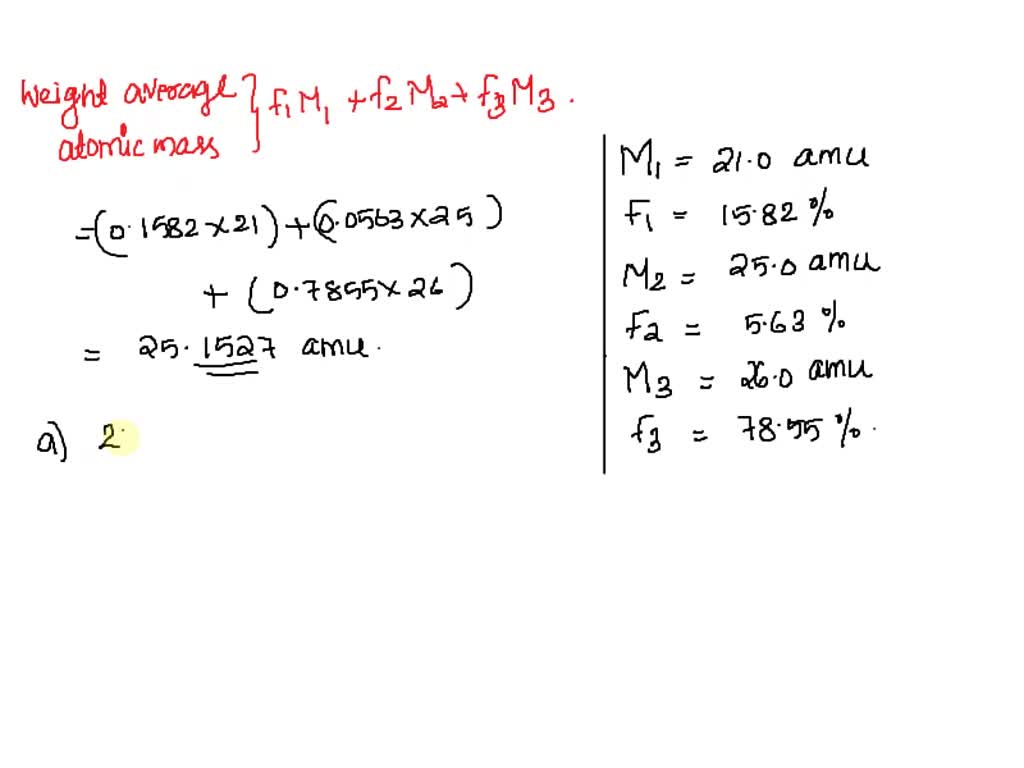 Weight average } f1M1 + f2M2 + f3M3.
atomic mass
=(0.1582×21)+(0.0563×25)
+ (0.7855×26)
= 25.1527 amu.
a) 2
M1 = 21.0 amu
F1 = 15.82%
M2 = 25.0 amu
F2 = 5.63%
M3 = 26.0 amu
f3 = 78.55%.